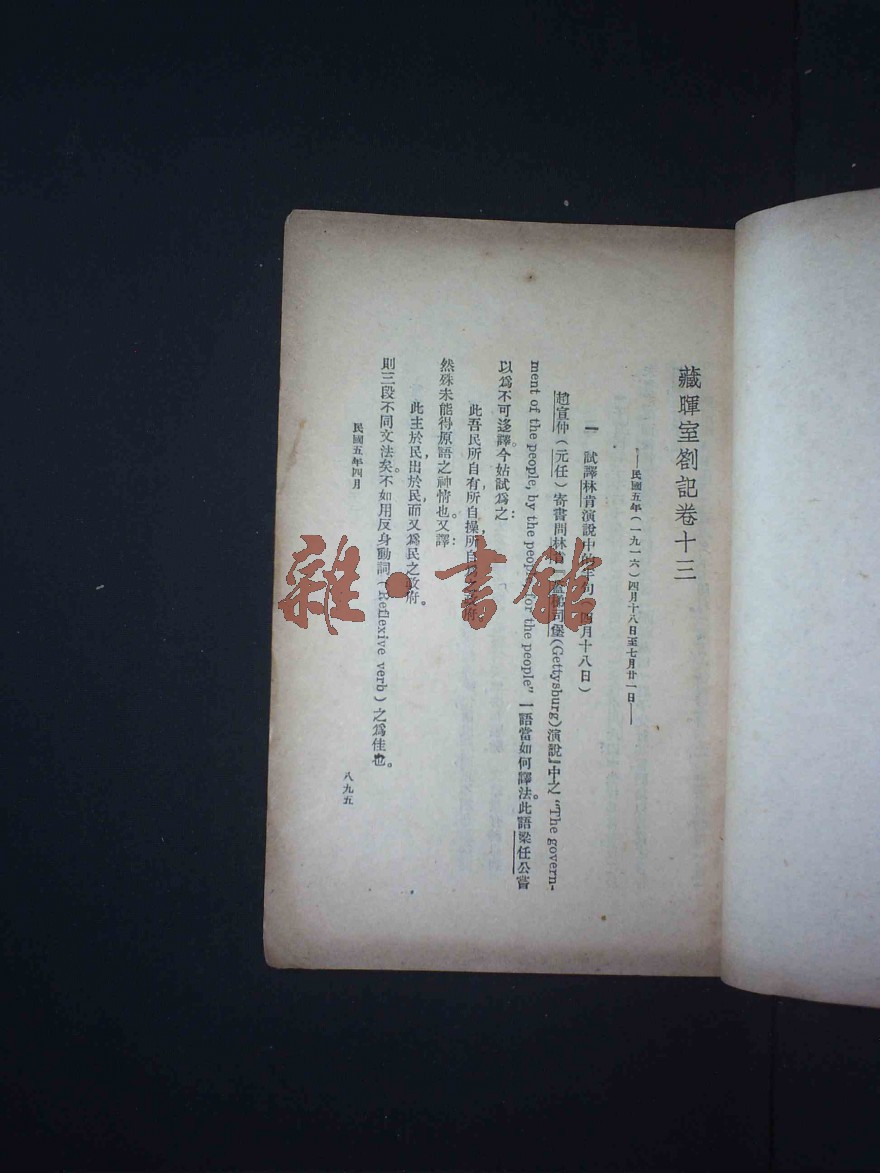 藏暉室劄記卷十三
——民國五年(一九一六)四月十八日至七月廿一日——
一 試譯林肯演說中的半句(四月十八日)
趙宣仲(元任)寄書問林肯『蓋梯司堡(Gettysburg)演說』中之“The govern-
ment of the people, by the people, for the people”一語當如何譯法。此語梁任公嘗
以爲不可迻譯。今姑試爲之:
此吾民所自有,所自操,所自之政府
然殊未能得原語之神情也。又譯:
此主於民,出於民,而又爲民之政府。
則三段不同文法矣。不如用反身動詞(Reflexive verb)之爲佳也。
民國五年四月
八九五
雜·書館